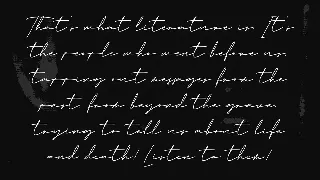 That's what literature is. It's
the people who went before us,
tapping out messages from the
past, from beyond the grave,
trying to tell us about life
and death! Listen to them!